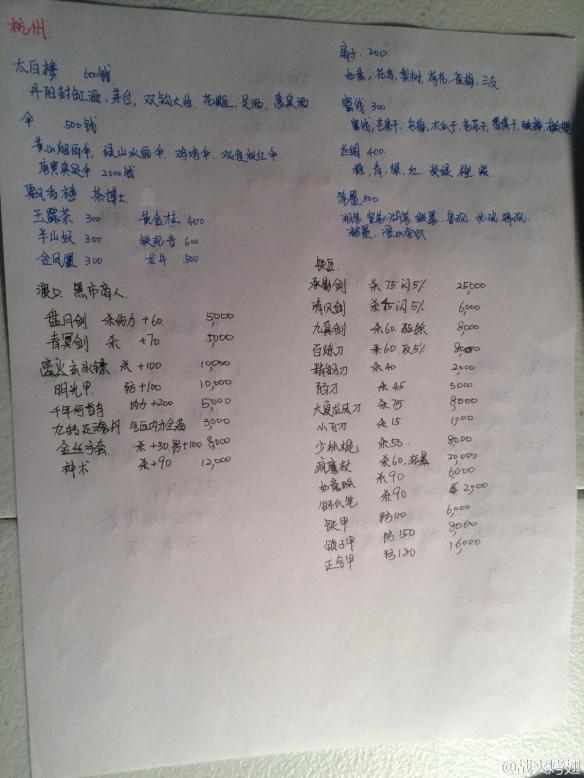 杭州
太白楼 600钱
丹阳封缸酒,茅台,双钩大曲,花雕,吴酒,惠泉酒
伞 500钱
黄山烟雨伞,绿山水画伞,鸡鸣伞,双青红伞
唐寅 2000钱
飘香楼 茶博士
玉露茶 300 黄金桂 400
羊山 300 铁观音 600
金凤凰 300 龙井 500
渡口 黑市商人
盘月剑 杀伤力+60. 5,000
青冥剑 杀 +70. 5,000
玄冰镖 杀 +100 10,000
明光甲 防+100 10,000
千年何首乌 内力+200 5,000
九转还魂丹 气血内力全满 3,000
金丝手套 杀+30,防+100 8,000
神术 杀+90 12,000
扇子. 200
如意,花鸟,梨树,荷花,雀梅,三友.
蜜饯 300
蜜饯,芒果干,乌梅,木瓜干,
丝绸 400.
棕,青,绿,红,橙,紫
笔墨500
湘笔,宣笔,湖笔,徽墨,鲁砚,
湖墨,澄心堂纸
铁匠
承影剑 杀75闪5% 25,000
清风剑 闪5% 6,000
九真剑 杀60. 8,000
百炼刀 杀60.反5% 8,000
精钢刀 杀40 2,000
陌刀 杀45 3000
大夏龙雀刀 杀75 8,000
小飞刀 杀15 1,000
少林棍 杀50. 8,000
疯魔杖 杀60, 20,000
如意 杀90 6,000
钢爪笔 杀90 2,000
铁甲 防110 6,000
锁子甲 防150 8,000
正合甲 防180 16,000
@战火烤翅